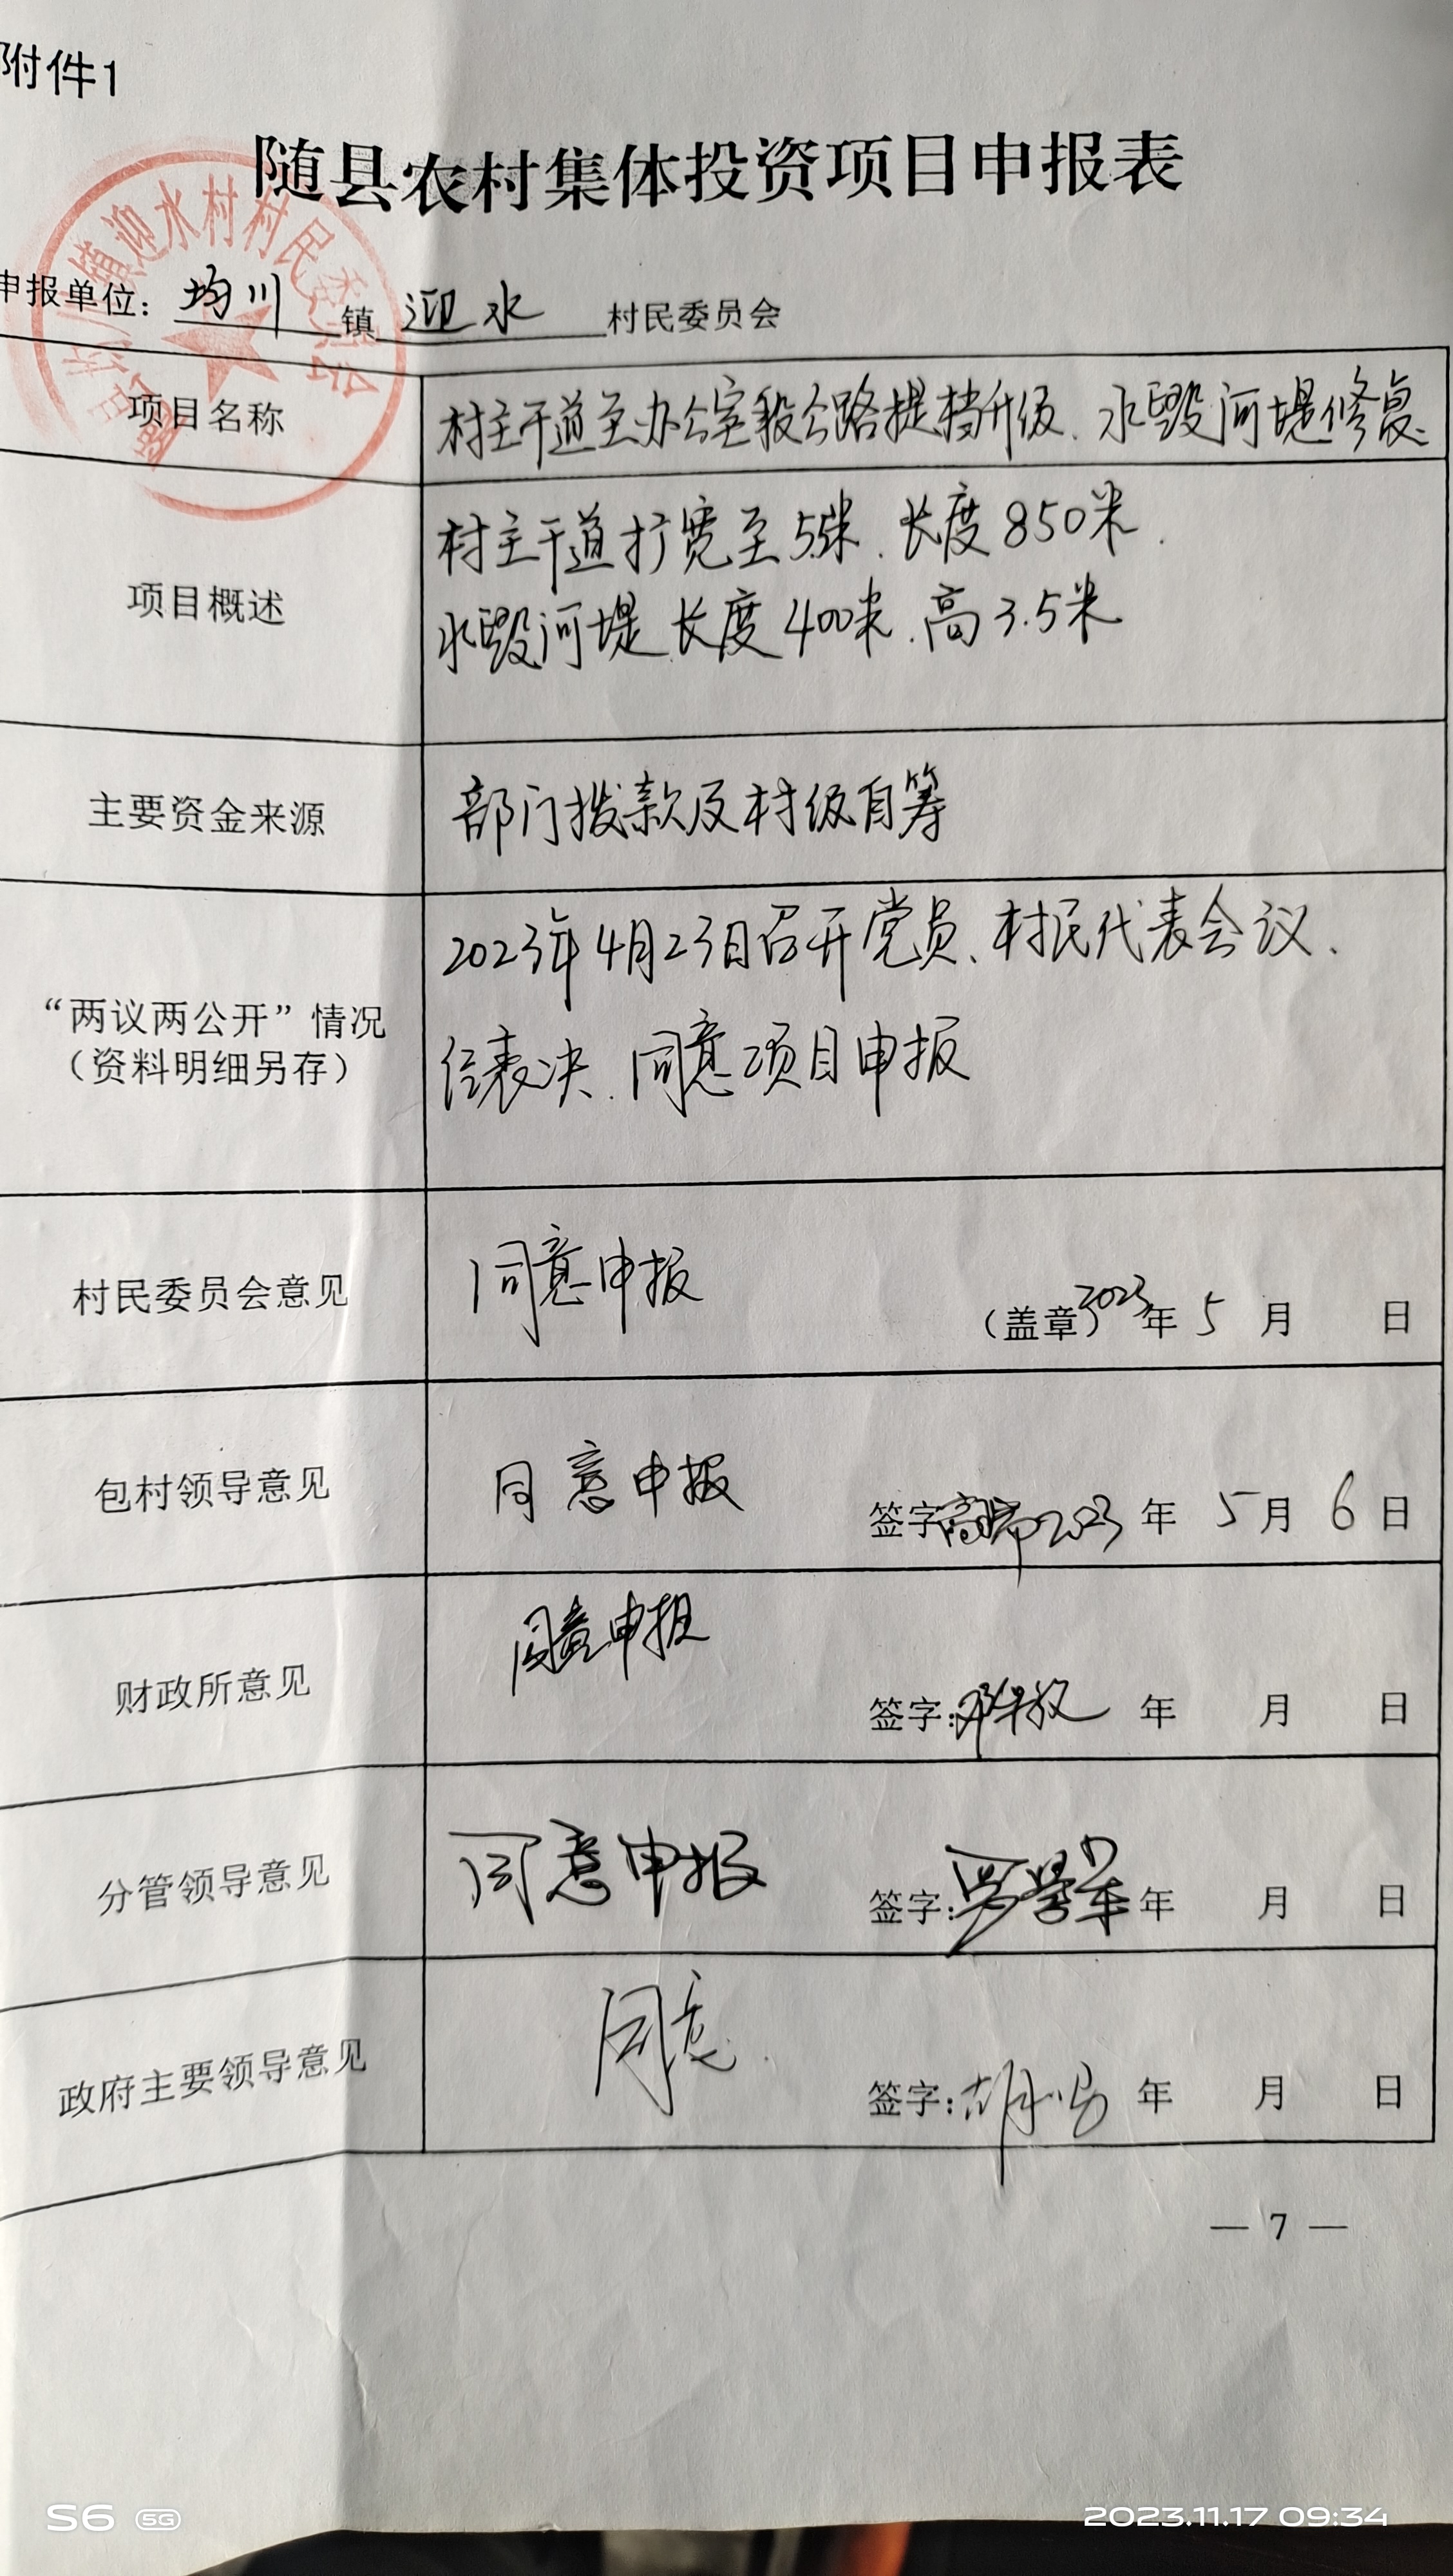 附件1
随县农村集体投资项目申报表
申报单位：均川镇迎水村民委员会
镇迎水村村民委员会
项目名称 村主干道至办公室段公路提档升级、水毁河堤修复
项目概述
村主干道扩宽至5.5米、长度850米、
水毁河堤、长度400米、高3.5米
主要资金来源 部门拨款及村级自筹
“两议两公开”情况
（资料明细另存）
2023年4月23日召开党员、村民代表会议、
经表决、同意项目申报
村民委员会意见 同意申报
（盖章）2023年5月 日
包村领导意见 同意申报
签字 2023年5月6日
财政所意见 同意申报
签字： 年 月 日
分管领导意见 同意申报
签字： 年 月 日
政府主要领导意见 同意
签字： 年 月 日
— 7 —
S6 5G
2023.11.17 09:34